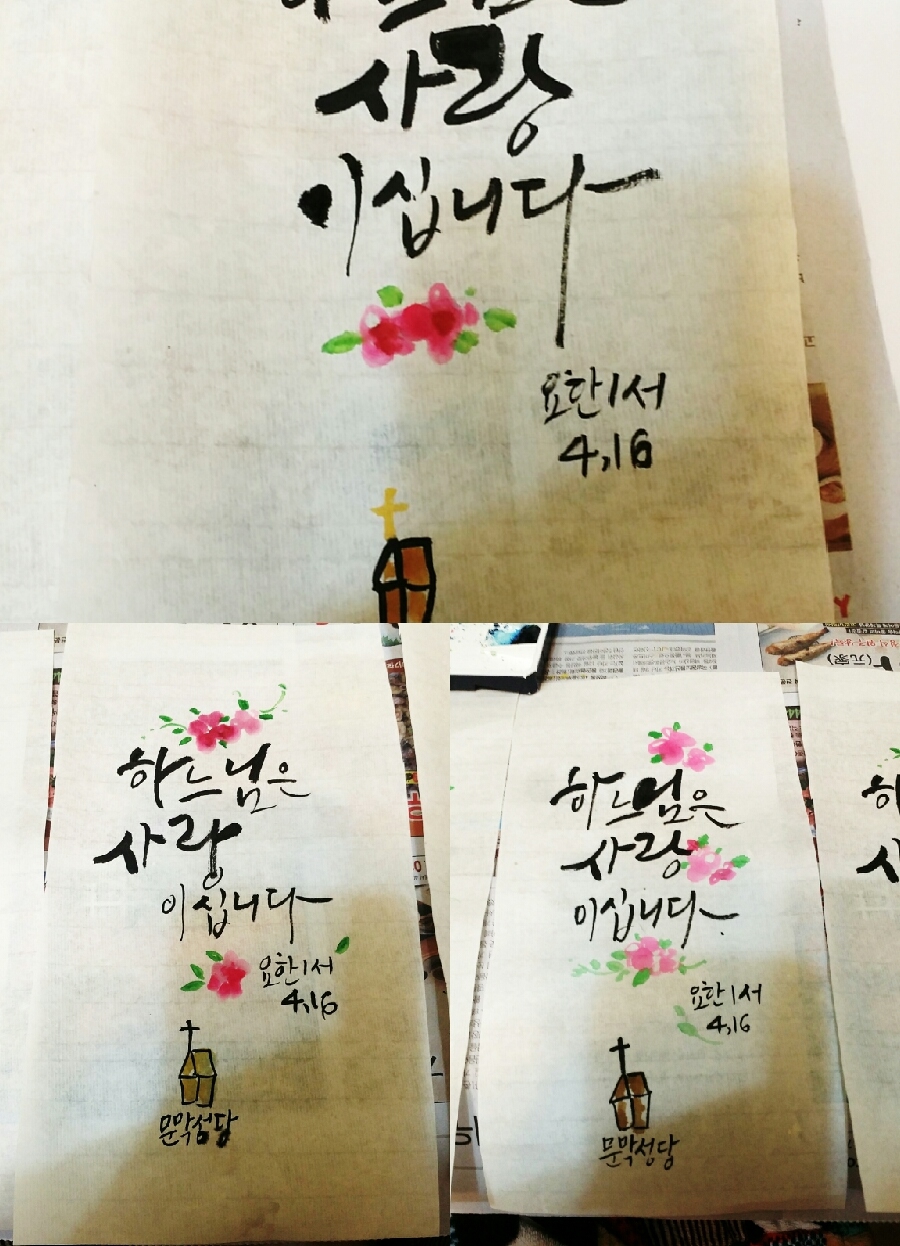 하느님은
사랑
이십니다
요한1서
4,16
하느님은
사랑
이십니다
요한1서
4,16
문막성당
하느님은
사랑
이십니다
요한1서
4,16
문막성당